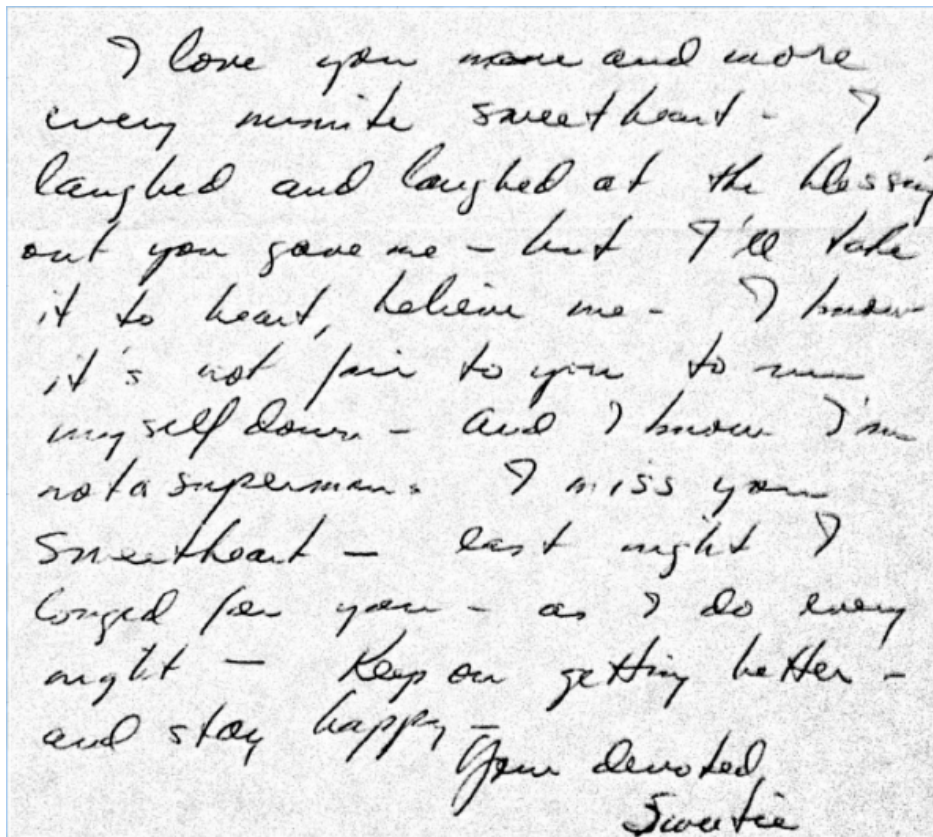 I love you more and more
every minute sweetheart - I
laughed and laughed at the blessing
out you gave me - but I'll take
it to heart, believe me - I know
it's not fair to you to run
myself down - and I know I'm
not a superman. I miss you
sweetheart - last night I
longed for you - as I do every
night - Keep on getting better -
and stay happy -
Your devoted,
Sweetie